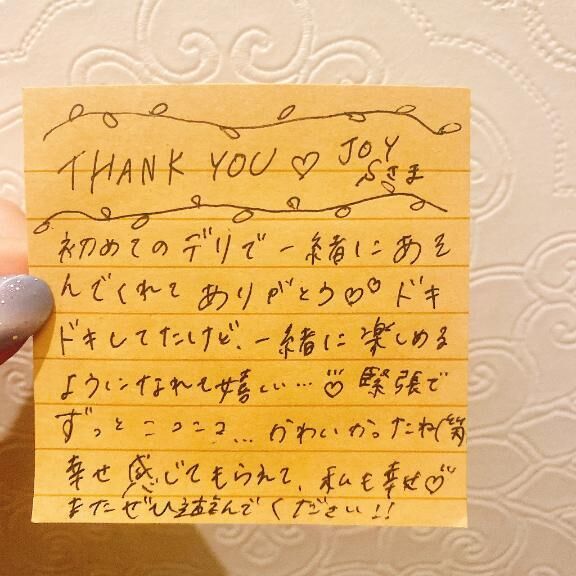 THANK YOU ♡ JOY
さま
初めてのデリで一緒にあそ
んでくれて ありがとう♡♡ ドキ
ドキしてたけど、一緒に楽しめる
ようになれても嬉しい…♡ 緊張で
ずっとニコニコ… かわいかったね(笑
幸せ感じてもられて、私も幸せ♡
またぜひ遊んでください!!